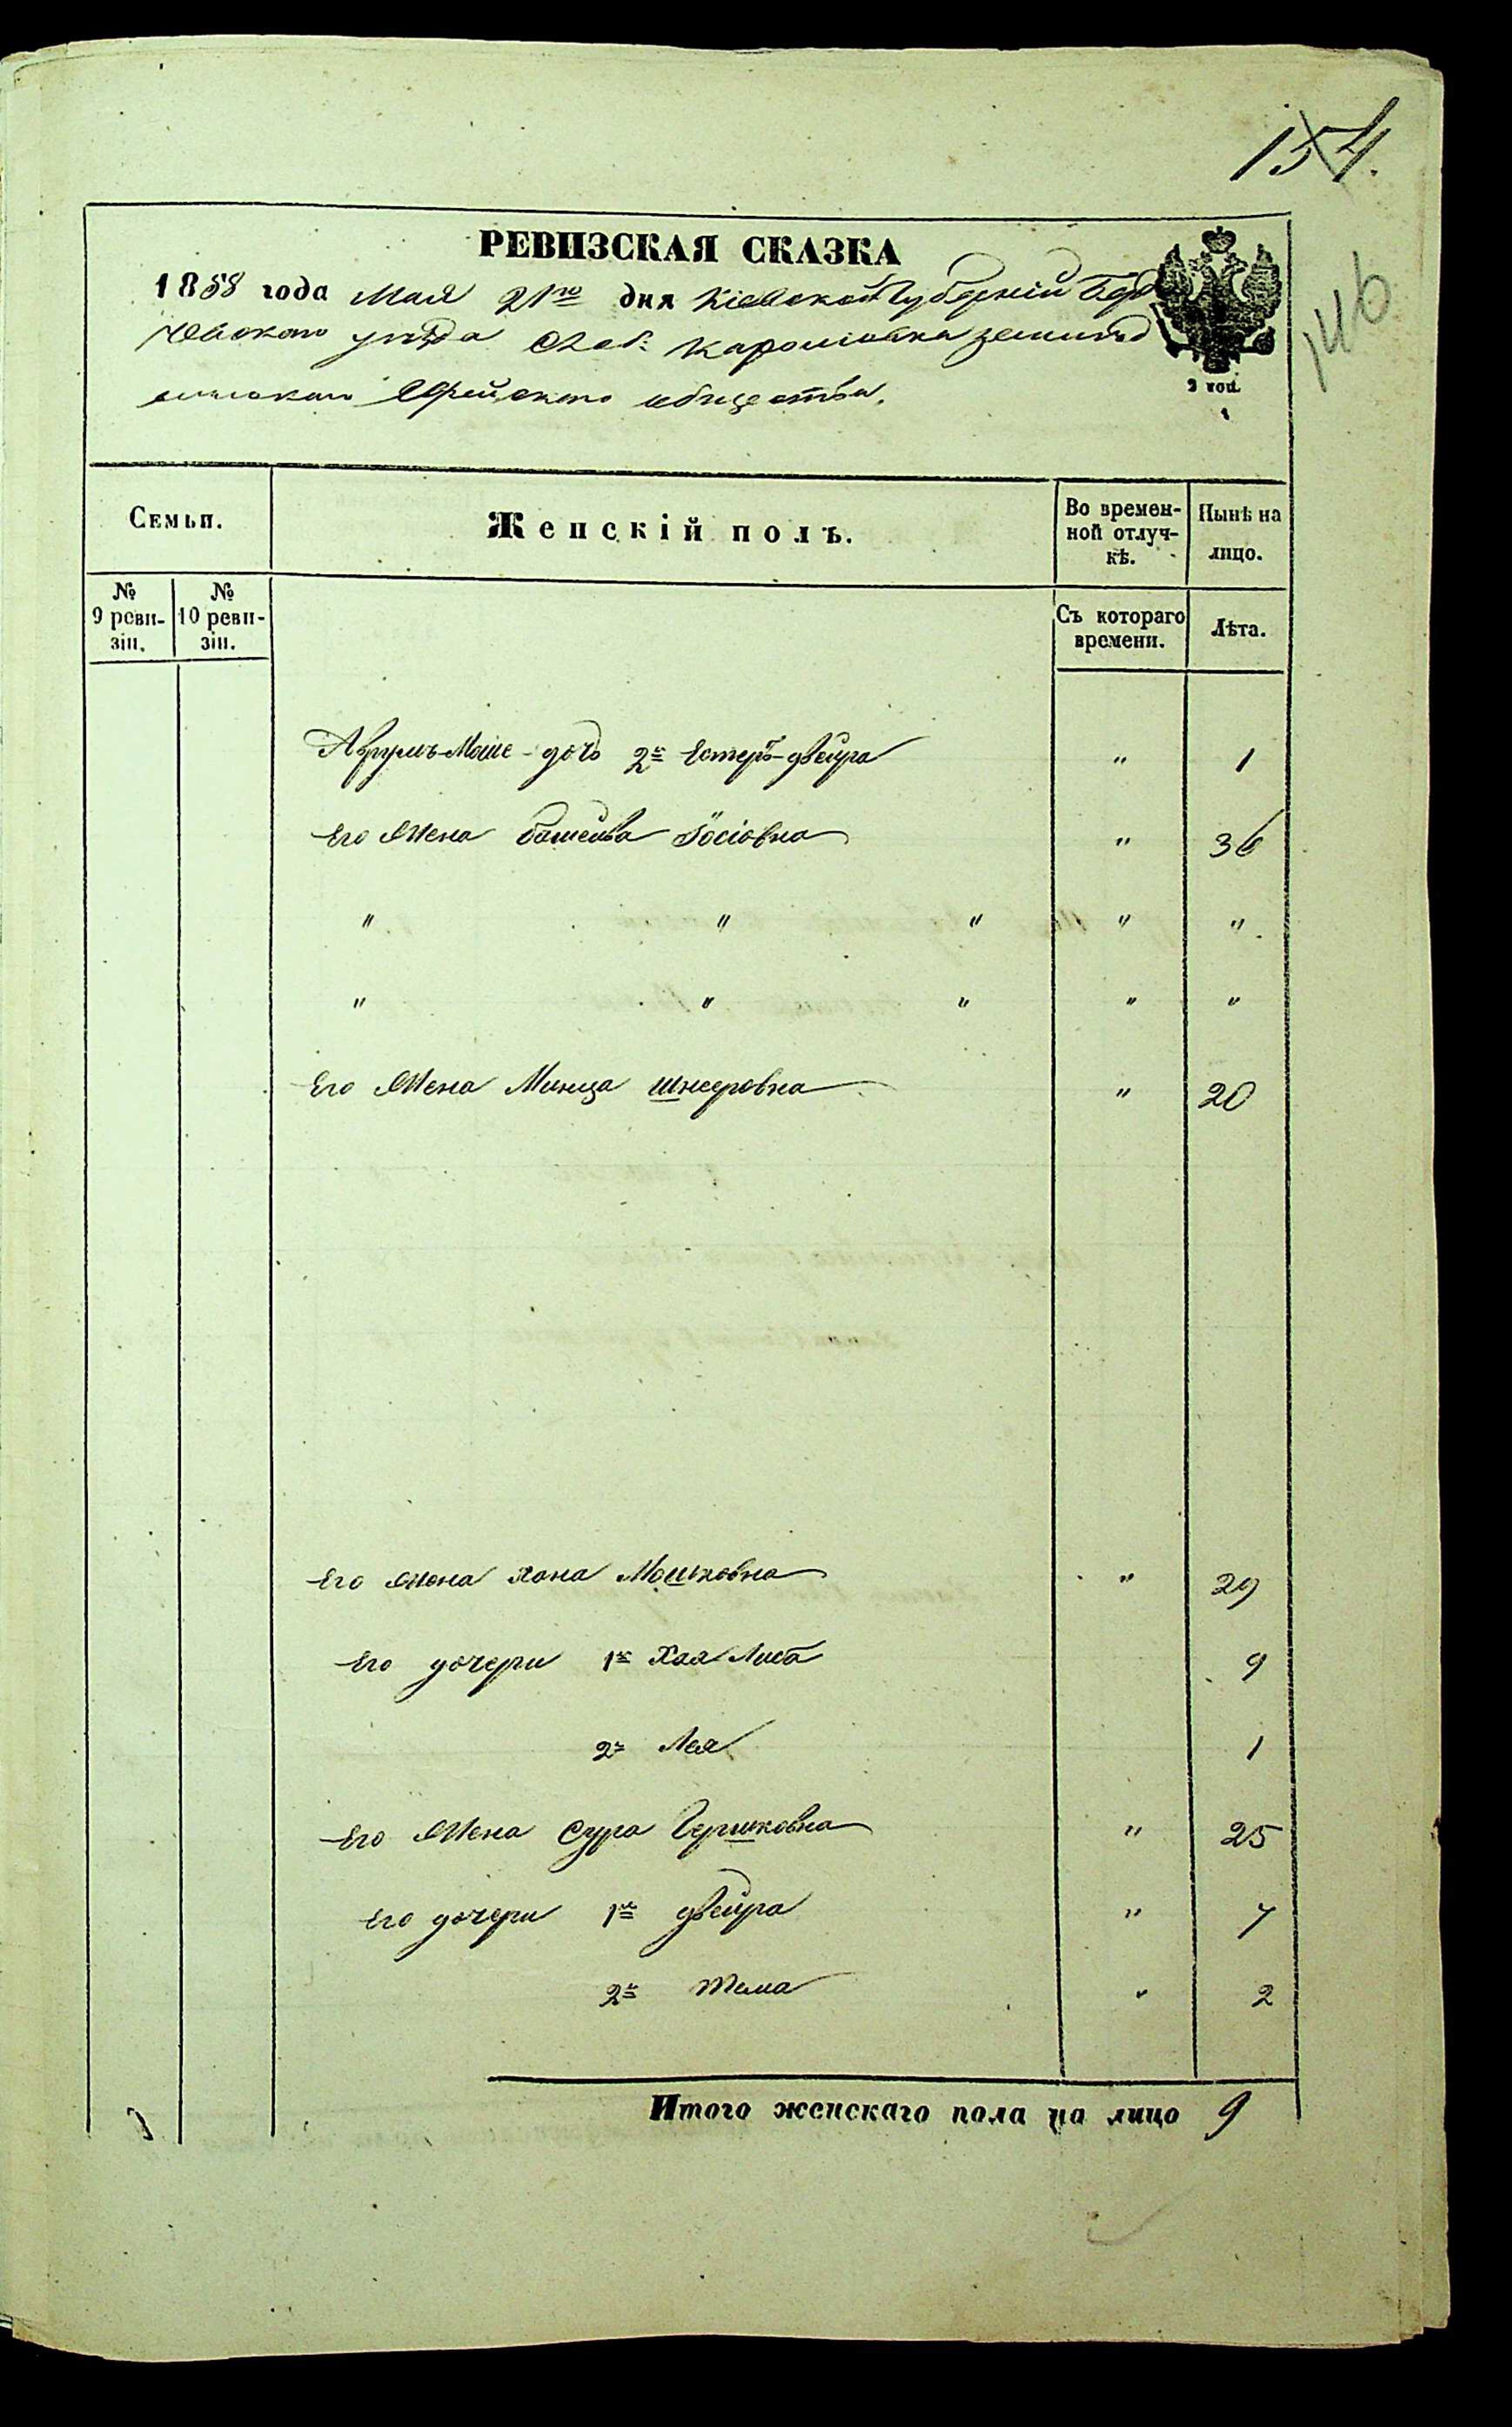 154.
146
РЕВИЗСКАЯ СКАЗКА
1858 года Мая 21го дня Кіевской Губерніи Берд
чевскаго уезда Слоб: Каролиовка
Еврейского общества.
2 коп.
Семьи.
Женскій полъ.
Во времен-
ной отлуч-
кѣ.
Нынѣ на
лицо.
№
9 реви-
зіи.
№
10 реви-
зіи.
Съ котораго
времени.
Лѣта.
Аврумъ-Моше-дочь 2я Естеръ-двейра " 1
Его Жена Башейва Іосіовна " 36
" " " " "
" " " " "
Его Жена Минца Шнееровна " 20
Его Жена Хана Мошковна " 29
Его дочери 1я Хая Либа 9
2я Лея 1
Его Жена Сура Гершковна " 25
Его дочери 1я двейра " 7
2я Тема " 2
Итого женскаго пола на лицо 9